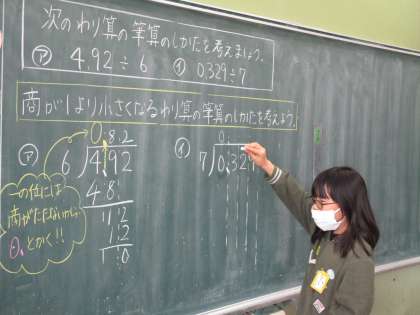 次のわり算の筆算のしかたを考えましょう。
㋐ 4.92÷6 ㋑ 0.329÷7
商が1より小さくなるわり算の筆算のしかたを考えよう。
㋐
0.82
6)4.92
48
12
12
0
一の位には
商がたたないから、
0.とかく!!
㋑
0.
7)0.32